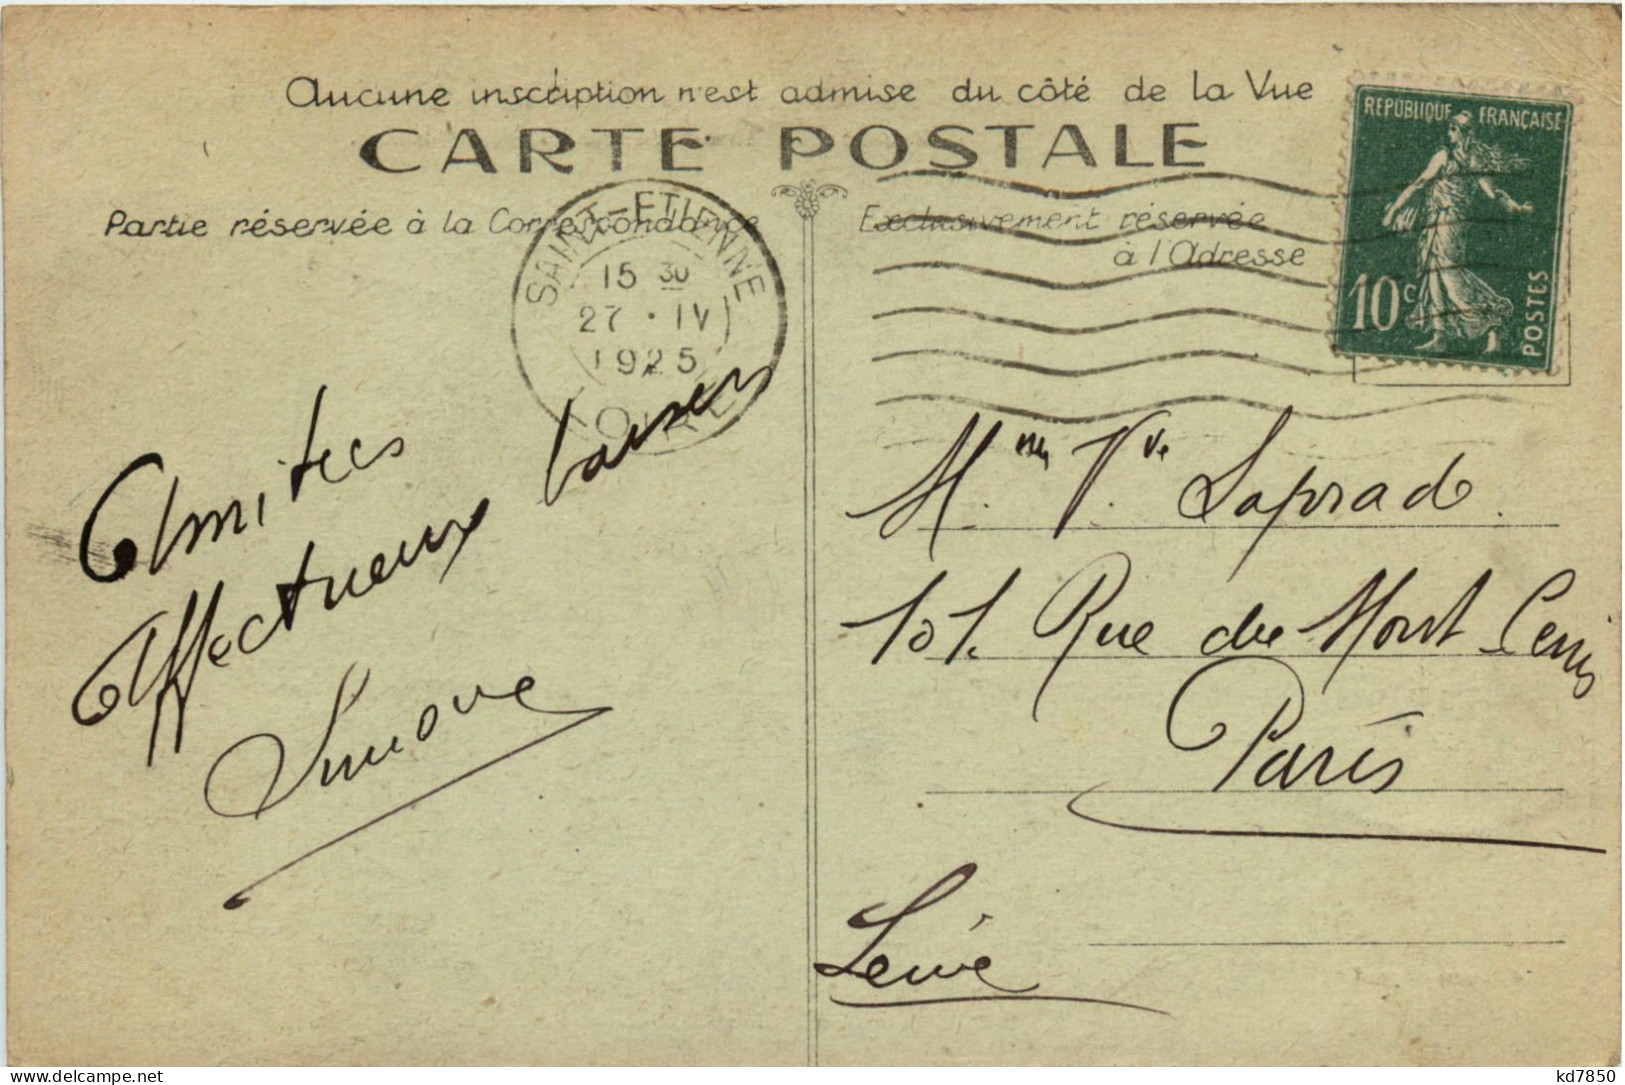 Aucune inscription n'est admise du côté de la Vue
CARTE POSTALE
Partie réservée à la Correspondance
Exclusivement réservée
à l'Adresse
RÉPUBLIQUE FRANÇAISE
10c
POSTES
SAINT-ETIENNE
15 30
27 · IV
1925
LOIRE
Amitiés
Affectueux baisers
Simone
Mme Vve Laprade.
101. Rue du Mont Cenis
Paris
Seine
kd7850